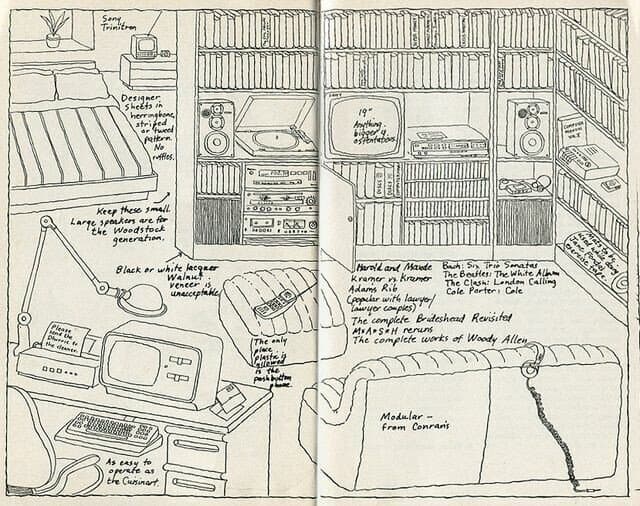 Sony
Trinitron
Designer
sheets in
herringbone,
striped
or tweed
pattern.
No
ruffles.
19"
Anything
bigger is
ostentatious.
Keep these small.
Large speakers are for
the Woodstock
generation.
Black or white lacquer
Walnut
veneer is
unacceptable.
Please
send the
Dhurrie to
the cleaner.
The only
place
plastic is
allowed
is the
pushbutton
phone.
Harold and Maude
Kramer vs Kramer
Adams Rib
(popular with lawyer/
lawyer couples)
The complete Brideshead Revisited
M*A*S*H reruns
The complete works of Woody Allen
Bach: Six Trio Sonatas
The Beatles: The White Album
The Clash: London Calling
Cole Porter: Cole
Jane Fonda's
exercise tape.
Modular –
from Conran's
As easy to
operate as
the Cuisinart.